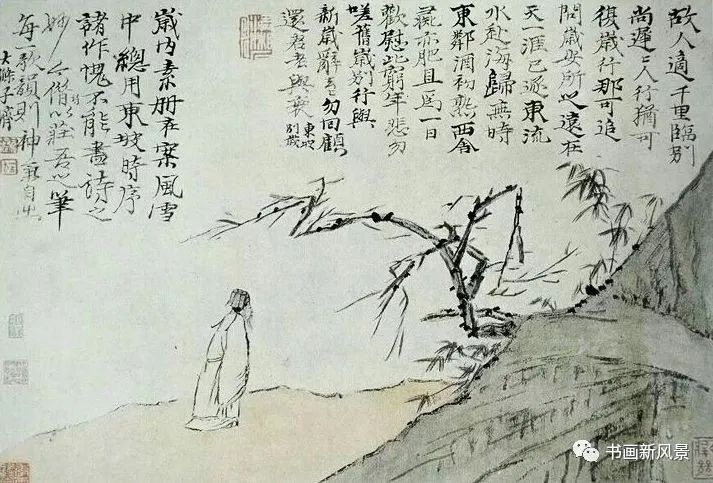 故人適千里臨別
尚遲〻人行猶可
復歲行那可追
問歲安所之遠在
天一涯已逐東流
水赴海歸無時
東鄰酒初熟西舍
彘亦肥且為一日
歡慰此窮年悲勿
嗟舊歲別行與
新歲辭去〻勿回顧
還君老與衰
東坡
別歲
歲內素冊在案風雪
中總用東坡時序
諸作愧不能畫詩之
妙以莊吾心筆
每一歌韻則神氣自出
大滌子濟
书画新风景